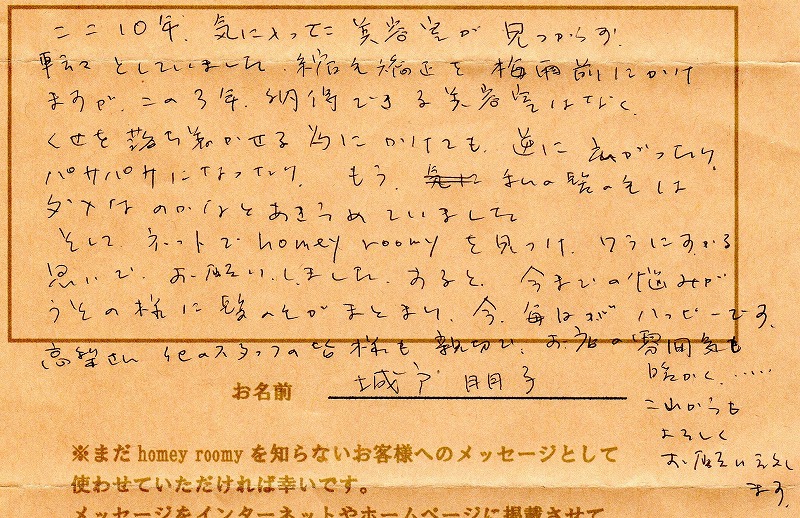 ここ10年、気に入った美容室が見つからず、
転々としていました。縮毛矯正を梅雨前にかけ
ますが、この3年、納得できる美容室はなく、
くせを落ち着かせる為にかけても、逆に広がったり、
パサパサになったり、もう、私の髪の毛は
ダメなのかなとあきらめていました
そして、ネットでhomey roomyを見つけ、ワラにすがる
思いで、お願いしました。すると、今までの悩みが
うその様に髪の毛がまとまり、今、毎日がハッピーです。
高梨さん、他のスタッフの皆様も親切で、お店の雰囲気も
暖かく、……
これからも
よろしく
お願い致し
ます。
お名前 城戸 朋子
※まだ homey roomy を知らないお客様へのメッセージとして
使わせていただければ幸いです。
メッセージをインターネットやホームページに掲載させて